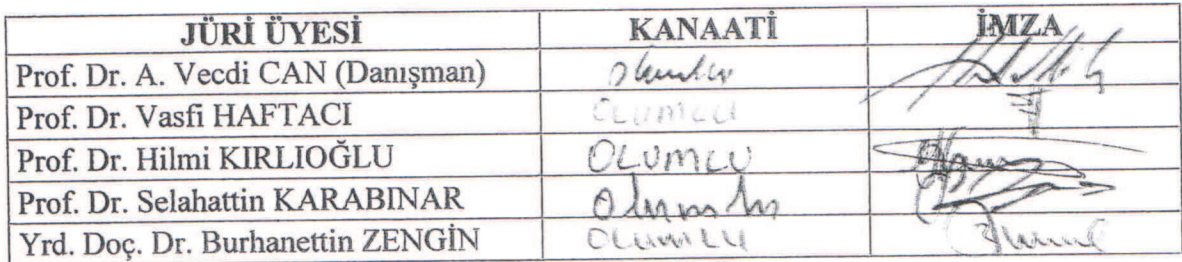 JÜRİ ÜYESİ KANAATİ İMZA
Prof. Dr. A. Vecdi CAN (Danışman) Olumlu
Prof. Dr. Vasfi HAFTACI OLUMLU
Prof. Dr. Hilmi KIRLIOĞLU OLUMLU
Prof. Dr. Selahattin KARABINAR Olumlu
Yrd. Doç. Dr. Burhanettin ZENGİN OLUMLU